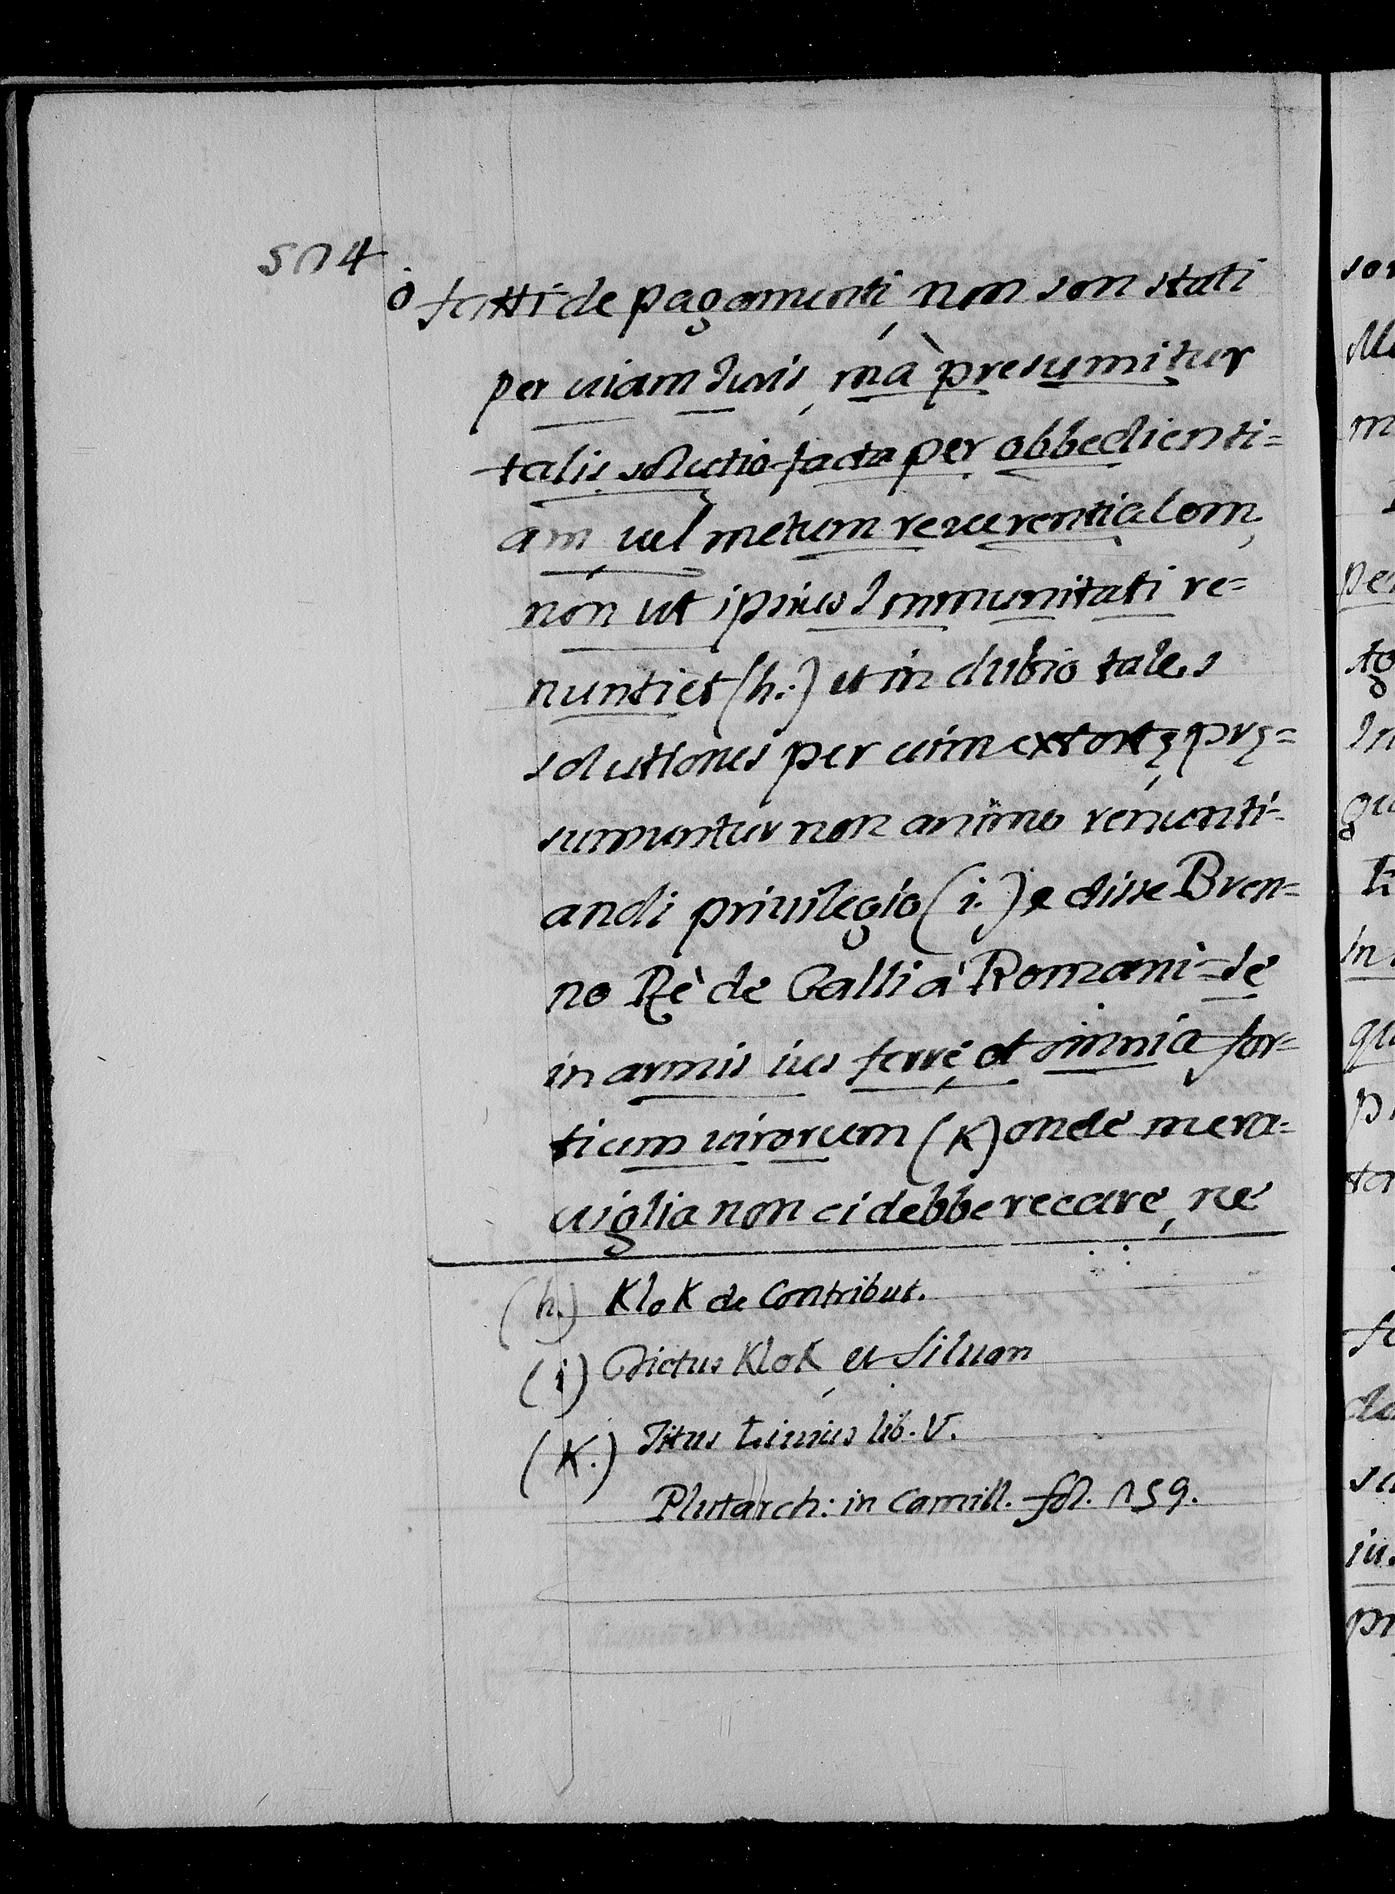 514
ò fatti de pagamenti, non son stati
per uiam Juris, mà presumitur
talis solutio facta per obbedienti=
am uel metum reuerentialem,
non ut ipsius Immunitati re=
nuntiet (h.) et in dubio tales
solutiones per uim extortę prę=
sumuntur non animo renunti=
andi priuilegio (i.) e disse Bren=
no Rè de Galli à Romani = se
in armis ius ferre, et omnia for=
tium uirorum (K) onde mera=
uiglia non ci debbe recare, ne
(h.) Klok de Contribut.
(i) Dictus Klok et Siluan
(K.) Titus Liuius lib. V.
Plutarch: in Camill. fol. 159.